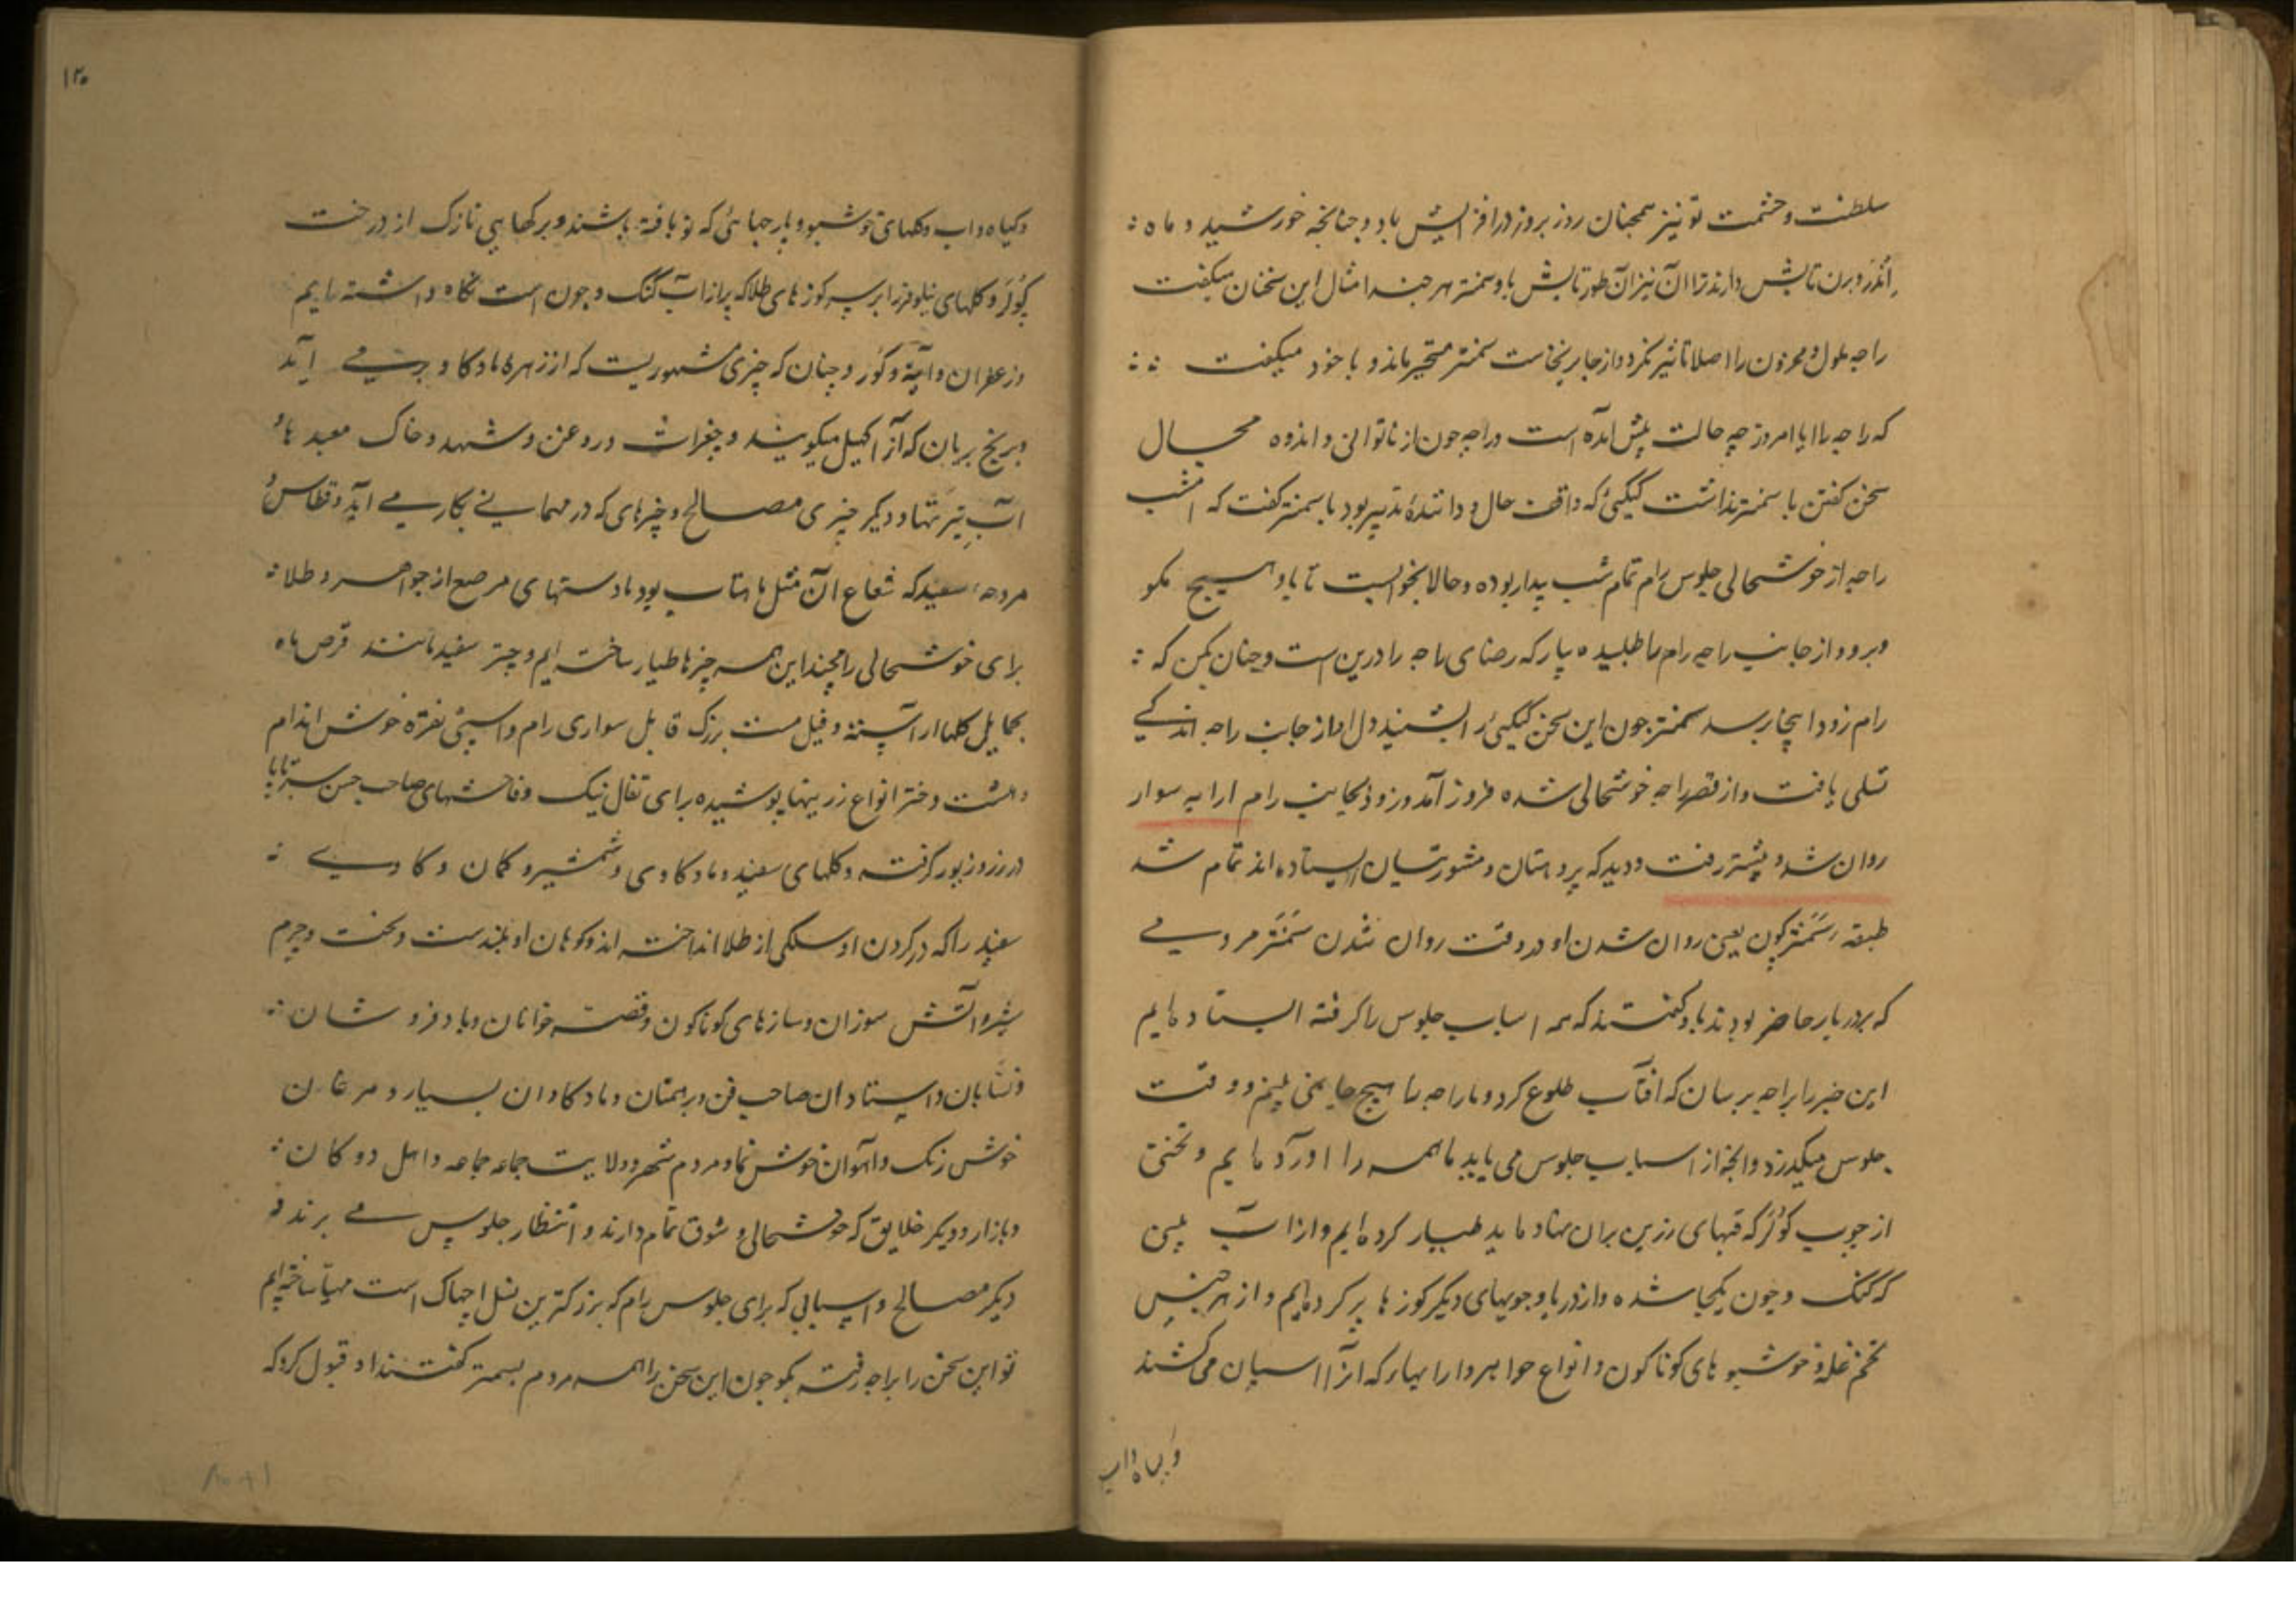 سلطنت و حشمت تو نیز همچنان روز بروز در افزایش باد و چنانچه خورشید و ماه
اندر و برن تابش دارند ترا آن نیز آن طور تابش باد سمنتر هر چند امثال این سخنان میکفت
راجه ملول و محزون را اصلا تاثیر نکرد و از جا برنخاست سمنتر متحیر ماند و با خود میکفت
که راجه را ایا امروز چه حالت پیش امده است و راجه چون از ناتوانی و اندوه مجال
سخن کفتن با سمنتر نداشت کیکیئ که واقف حال و دانندهٔ تدبیر بود با سمنتر کفت که امشب
راجه از خوشحالی جلوس رام تمام شب بیدار بوده و حالا بخوابست تا باو هیچ مکو
و برو و از جانب راجه رام را طلبیده بیار که رضای راجه را درین است و چنان کمن که
رام زود اینجا برسد سمنتر چون این سخن کیکیئ را بشنید دل او از جانب راجه اندکی
تسلی یافت و از قصر راجه خوشحالی شده فرود آمد و زود بجانب رام ارابه سوار
روان شد و پیشتر رفت و دید که پروهتان و مشورتیان ایستاده اند تمام شد
طبقه سمنتر کون یعنی روان شدن او در وقت روان شدن سمنتر مردمی
که بر دربار حاضر بودند باو کفتند که همه اسباب جلوس را کرفته ایستاده ایم
این خبر را براجه برسان که افتاب طلوع کرد و ما راجه را هیچ جا نمی بینم و وقت
جلوس میکذرد و انچه از اسباب جلوس می باید ما همه را اورده ایم و تختی
از چوب کولر که قبهای زرین بران نهاده اند طیار کرده ایم و از آب
که کنک و جون یکجا شده و از دریا و جویهای دیکر کوزها پر کرده ایم و از هر جنس
تخم غله و خوشبوهای کوناکون و انواع جواهر و ارابهاء که انرا اسپان می کشند
و کیاه و اب
و کیاه و اب و کلهای خوشبو و پارچهائی که نو بافته باشند و برکهایی نازک از درخت
کولر و کلهای نیلوفر را بر سر کوزهای طلا که پر از آب کنک و جون است نکاه داشته ایم
و زعفران و آینه و کور و چنان که چیزی مشهوریست که از زهرهٔ ماده کاو بر می آید
و برنج بریان که آنرا کهیل میکویند و جغرات و روغن و شهد و خاک معبدها
آب تیرتها و دیکر چیزی مصالح و چیزهای که در مهمانی بکار می آید و قطاس
مروحهٔ سفید که شعاع آن مثل ماهتاب بود با دستهای مرصع از جواهر و طلا
برای خوشحالی رامچند این همه چیزها طیار ساخته ایم و چتر سفید مانند قرص ماه
بحمایل کلها اراسته و فیل مست بزرک قابل سواری رام و اسپی نقره خوش اندام
و هشت دختر انواع زرینها پوشیده برای تفال نیک و فاحشهای صاحب حسن سراپا
در زر و زیور کرفته و کلهای سفید و ماده کاوی و شمشیر و کمان و کاوی
سفید را که در کردن او سلکی از طلا انداخته اند و کوهان او بلندست و تخت و چرم
شیر و آتش سوزان و سازهای کوناکون و قصه خوانان و باد فروشان
و نسابان و استادان صاحب فن و برهمنان و ماده کاوان بسیار و مرغان
خوش رنک و آهوان خوش نما و مردم شهر و ولایت جماعه جماعه و اهل دوکان
و بازار و دیکر خلایق که خوشحالی و شوق تمام دارند و انتظار جلوس می برند
دیکر مصالح و اسبابی که برای جلوس رام که بزرکترین نسل اچهاک است مهیا ساخته ایم
تو این سخن را براجه رفته بکو چون این سخن را همه مردم بسمنتر کفتند او قبول کرد که